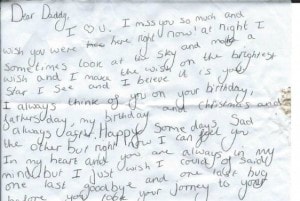 Dear Daddy,
I ♡ U. I miss you so much and
wish you were here right now! at night I
sometimes look at the sky and make a
wish and I make the wish on the brightest
star I see and I believe it is you
I always think of you on your birthday,
fathers day, my birthday and christmas and
always after. Happy some days Sad
the other but right now I can feel you
In my heart and you are always in my
mind but I just wish I could of said
one last goodbye and one last hug
before you took your jorney to your